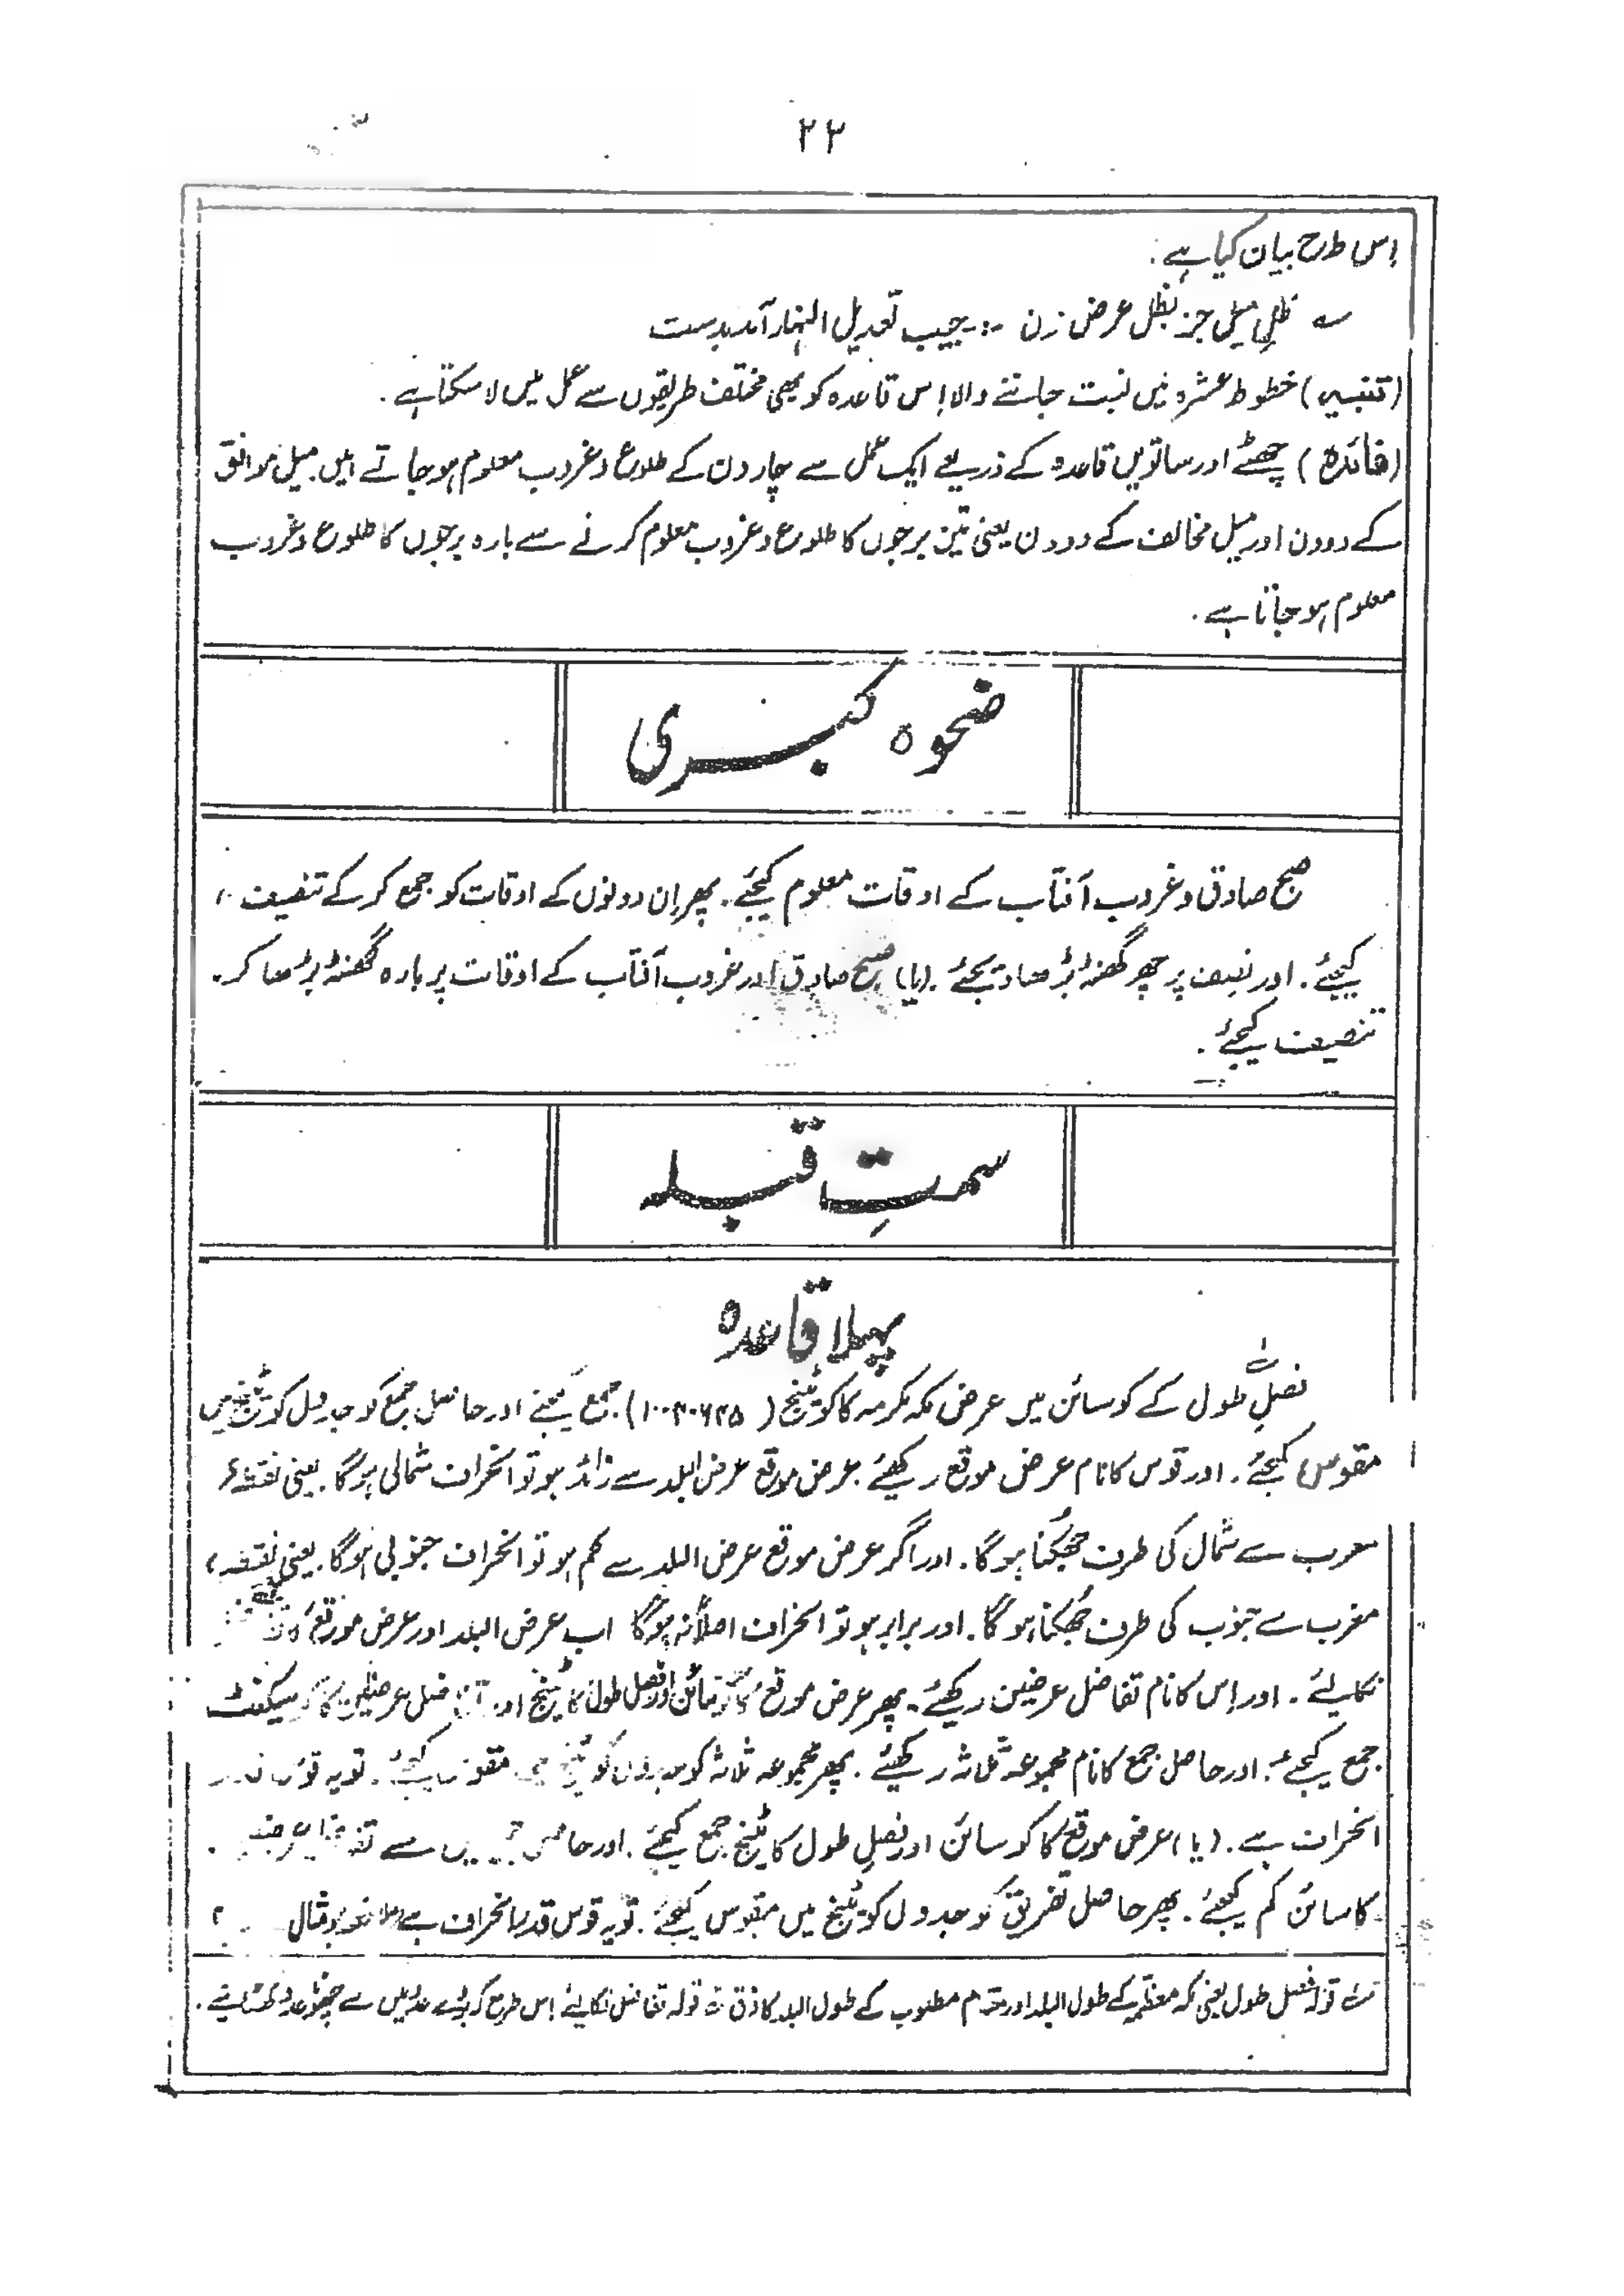 ۲۲
اِس طرح بیان کیا ہے .
ظلِ میل جز بظل عرض زن ⁘ جیب تعدیل النہار آمد بدست
(تنبیہ) خطوط عشرہ میں نسبت جاننے والا اِس قاعدہ کو بھی مختلف طریقوں سے عمل میں لا سکتا ہے .
(فائدہ) چھٹے اور ساتویں قاعدہ کے ذریعے ایک عمل سے چار دن کے طلوع و غروب معلوم ہو جاتے ہیں . میل موافق
کے دو دن اور میل مخالف کے دو دن یعنی تین برجوں کا طلوع و غروب معلوم کرنے سے بارہ برجوں کا طلوع و غروب
معلوم ہو جاتا ہے .
ضحوہ کبریٰ
صبح صادق و غروب آفتاب کے اوقات معلوم کیجئے . پھر اِن دونوں کے اوقات کو جمع کر کے تنصیف
کیجئے . اور نصف پر چھ گھنٹہ بڑھا دیجئے . (یا) صبح صادق اور غروب آفتاب کے اوقات پر بارہ گھنٹہ بڑھا کر
تنصیف کیجئے .
سمتِ قبلہ
پہلا قاعدہ
فصلِ طول کے کوسائن میں عرض مکہ مکرمہ کا کوٹینج ( ) جمع کیجئے اور حاصل جمع کو جدول کوٹینج میں
مقوس کیجئے . اور قوس کا نام عرض موقع رکھئے . عرض موقع عرض البلد سے زائد ہو تو انحراف شمالی ہوگا . یعنی نقطۂ
مغرب سے شمال کی طرف جھکنا ہوگا . اور اگر عرض موقع عرض البلد سے کم ہو تو انحراف جنوبی ہوگا . یعنی نقطۂ
مغرب سے جنوب کی طرف جھکنا ہوگا . اور برابر ہو تو انحراف اصلاً نہ ہوگا اب عرض البلد اور عرض موقع کا
نکالئے . اور اِس کا نام تفاضل عرضین رکھئے . پھر عرض موقع کا کوسائن اور فصل طول کا ٹینج اور تفاضل عرضین کا کوسیکنٹ
جمع کیجئے . اور حاصل جمع کا نام مجموعہ ثلاثہ رکھئے . پھر مجموعہ ثلاثہ کو جدول کوٹینج میں مقوس کیجئے . تو یہ قوس قدر
انحراف ہے . (یا) عرض موقع کا کوسائن اور فصلِ طول کا ٹینج جمع کیجئے . اور حاصل جمع میں سے تفاضل عرضین
کا سائن کم کیجئے . پھر حاصل تفریق کو جدول کوٹینج میں مقوس کیجئے . تو یہ قوس قدر انحراف ہے ملاحظہ ہو مثال
قولہ فصل طول یعنی مکہ معظمہ کے طول البلد اور مقام مطلوب کے طول البلد کا فرق قولہ تفاضل نکالئے اِس طرح کہ بڑے عدد میں سے چھوٹا عدد گھٹائیے .